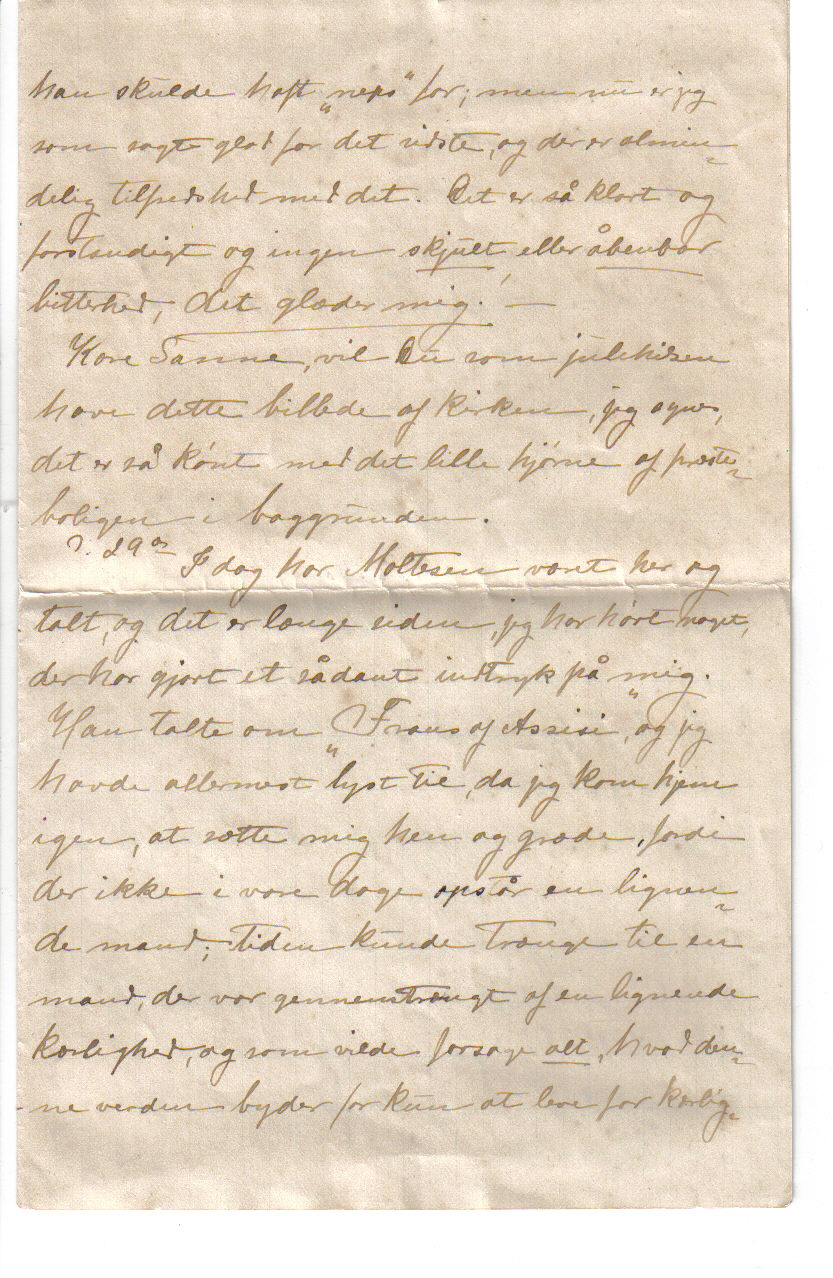 han skulde haft „neps" for; men nu er jeg
som sagt glad for det sidste, og der er almin-
delig tilfredshed med det. Det er så klart og
forstandigt og ingen skjult eller åbenbar
bitterhed, det glæder mig! —
Kære Sanne, vil Du som julehilsen
have dette billede af kirken, jeg synes,
det er så kønt med det lille hjørne af præste-
boligen i baggrunden.
d. 29de I dag har Moltesen været her og
talt, og det er længe siden, jeg har hørt noget,
der har gjort et sådant indtryk på mig.
Han talte om „Frans af Assisi", og jeg
havde allermest lyst til, da jeg kom hjem
igen, at sætte mig hen og græde, fordi
der ikke i vore dage opstår en lignen-
de mand; tiden kunde trænge til en
mand, der var gennemtrængt af en lignende
kærlighed, og som vilde forsage alt, hvad den-
ne verden byder for kun at leve for kærlig-